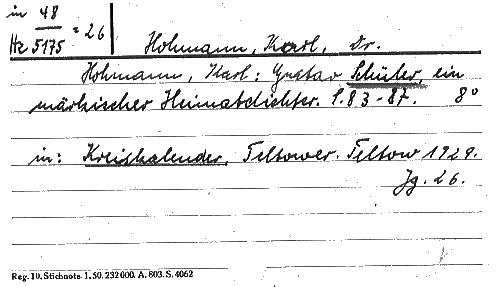 in 48
Hz 5175 = 26
Hohmann, Karl, Dr.
Hohmann, Karl: Gustav Schüler, ein
märkischer Heimatdichter. S. 83-87. 8°
in: Kreiskalender, Teltower. Teltow 1929.
Jg. 26.
Reg. 10. Stichnote. 1. 50. 232000. A. 803. S. 4062